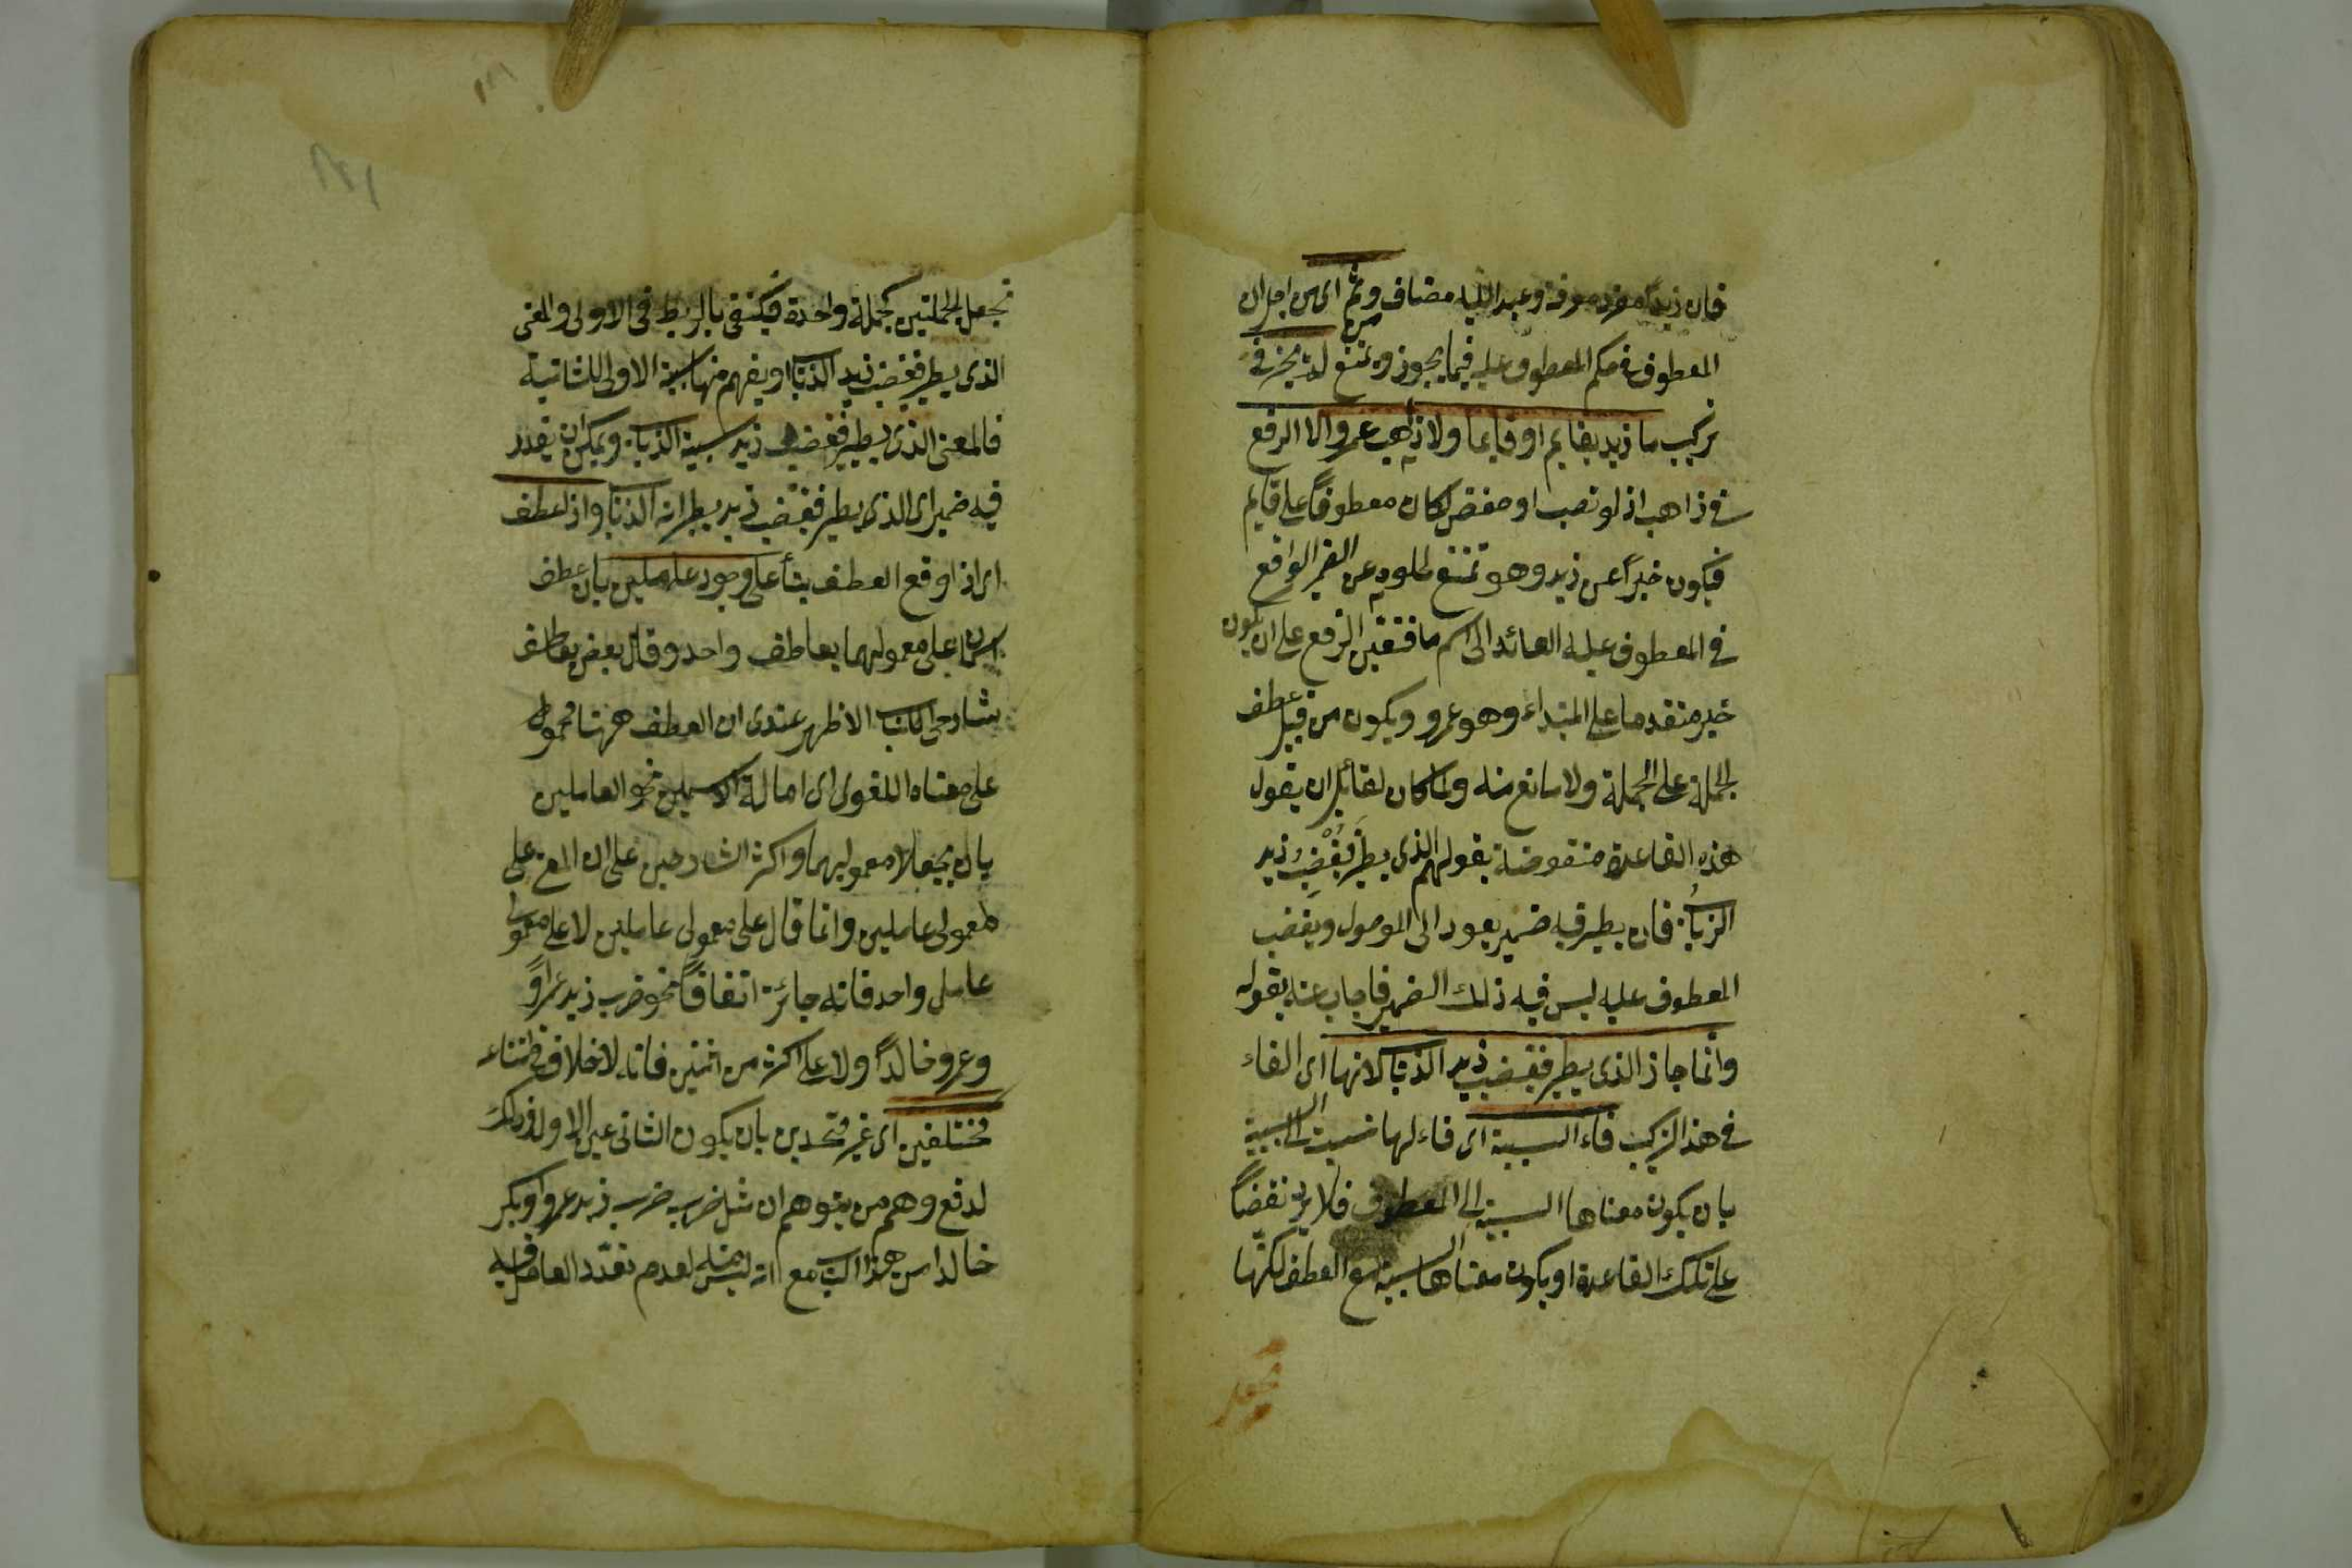 فان زيدا مفرد معرفة وعبد الله مضاف ومن ثم اى من اجل ان
المعطوف فى حكم المعطوف عليه فيما يجوز ويمتنع لم يجز فى
تركيب ما زيد بقايم او قايما ولا ذاهب عمرو الا الرفع
فى ذاهب اذ لو نصب او خفض لكان معطوفاً على قايم
فيكون خبراً عن زيد وهو ممتنع لخلوه عن الضمير الواقع
فى المعطوف عليه العائد الى اسم ما فتعين الرفع على ان يكون
خبر متقدما على المبتداء وهو عمرو ويكون من قبيل عطف
الجملة على الجملة ولا مانع منه ولما كان لقائل ان يقول
هذه القاعدة منقوضة بقولهم الذى يطير فيغضب زيد
الذباب فان يطير فيه ضمير يعود الى الموصول ويغضب
المعطوف عليه ليس فيه ذلك الضمير فاجاب عنه بقوله
وانما جاز الذى يطير فيغضب زيد الذباب لانها اى الفاء
فى هذا التركيب فاء السببية اى فاء لها نسبت الى السببية
بان يكون معناها السببية الى المعطوف فلا يرد نقضاً
على تلك القاعدة او يكون معناها السببية مع العطف لكنها
تجعل الجملتين كجملة واحدة فيكتفى بالربط فى الاولى والمعنى
الذى يطير فيغضب زيد الذباب او يفهم منها سببية الاولى للثانية
فالمعنى الذى يطير فيغضب زيد بسببه الذباب ويمكن ان يقدر
فيه ضمير اى الذى يطير فيغضب زيد بطيرانه الذباب واذا عطف
اى اذا وقع العطف بناً على وجود عاملين بان عطف
اسمان على معموليهما بعاطف واحد وقال بعض
شارحى الكتاب الاظهر عندى ان العطف ههنا محمول
على معناه اللغوى اى امالة الاسمين نحو العاملين
بان يجعلا معموليهما واكثر الشارحين على ان المعنى على
معمولى عاملين وانما قال على معمولى عاملين لا على معمولى
عامل واحد فانه جائز اتفاقاً نحو ضرب زيد عمراً
وعمرو خالداً ولا على اكثر من اثنين فانه لا خلاف فى امتناعه
مختلفين اى غير متحدين بان يكون الثانى عين الاول وذلك
لدفع وهم من يتوهم ان مثل ضرب ضرب زيد عمروا وبكر
خالدا من هذا الباب مع انه ليس منه لعدم تعدد العامل فيه